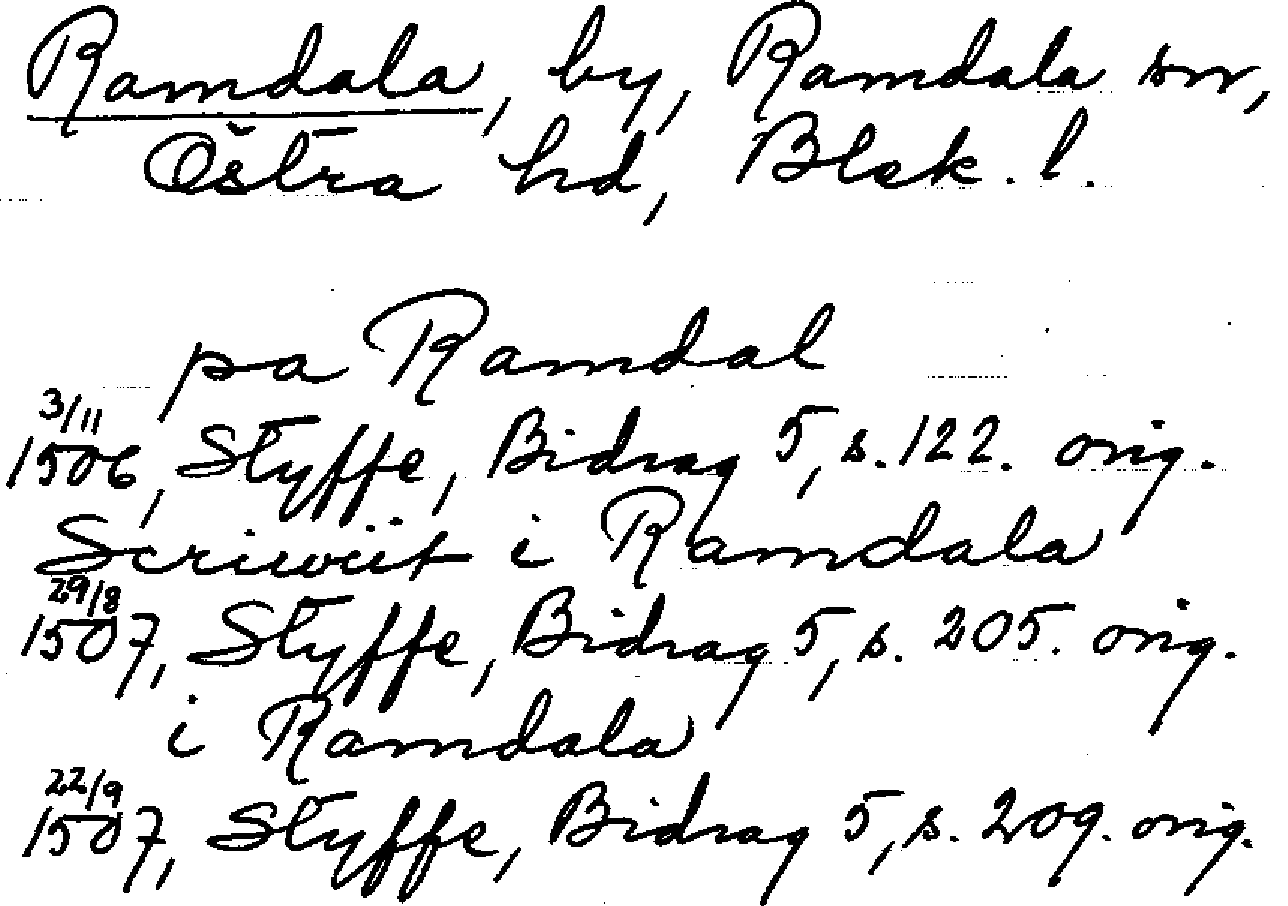 Ramdala, by, Ramdala sn,
Östra hd, Blek. l.
pa Ramdal
3/11
1506, Styffe, Bidrag 5, s. 122. orig.
Scriwüt i Ramdala
29/8
1507, Styffe, Bidrag 5, s. 205. orig.
i Ramdala
22/9
1507, Styffe, Bidrag 5, s. 209. orig.